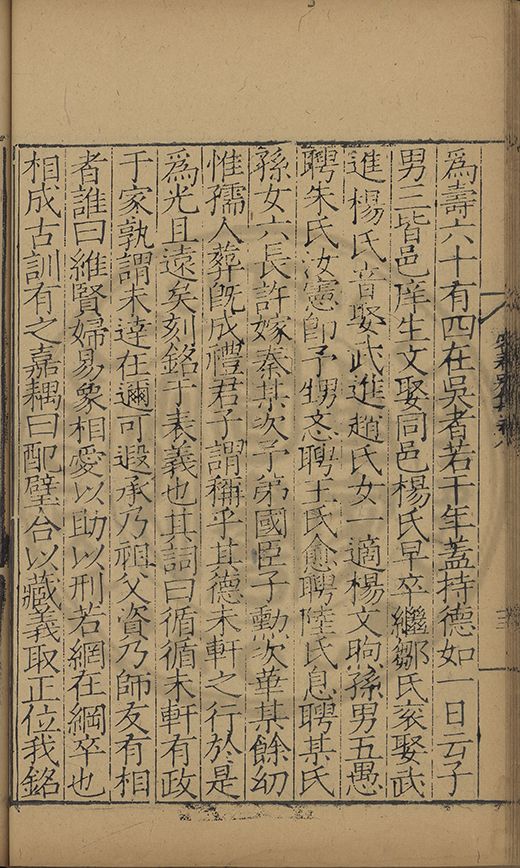 爲壽六十有四在吳者若干年蓋持德如一日云子
男三皆邑庠生文娶同邑楊氏早卒繼鄒氏袞娶武
進楊氏音娶武進趙氏女一適楊文煦孫男五愚
聘朱氏汝憲卽予甥忞聘王氏愈聘陸氏息聘某氏
孫女六長許嫁秦某次予弟國臣子勳次華某餘幼
惟孺人葬旣成禮君子謂稱乎其德未軒之行於是
爲光且遠矣刻銘于表義也其詞曰循循未軒有政
于家孰謂未達在邇可遐承乃祖父資乃師友有相
者誰曰維賢婦易象相愛以助以刑若網在綱卒也
相成古訓有之嘉耦曰配璧合以藏義取正位我銘